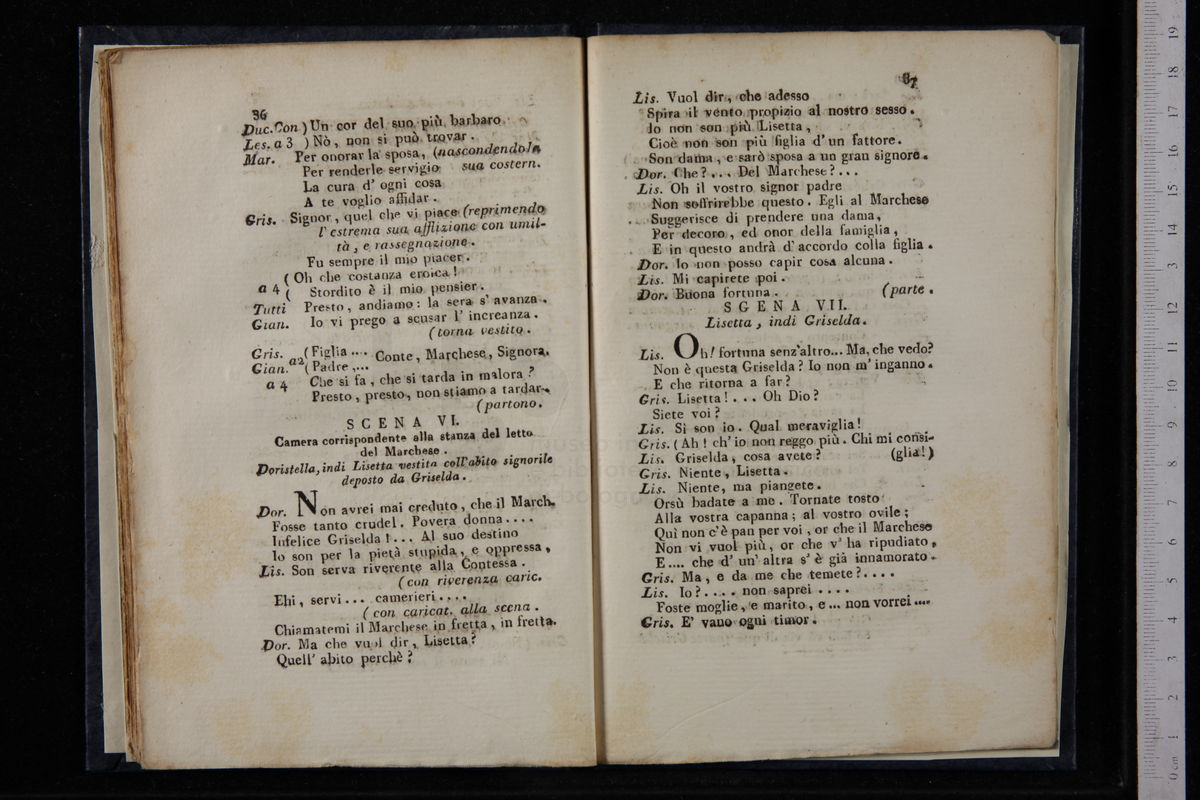 36
Duc. Con ) Un cor del suo più barbaro
Les. a 3 ) Nò, non si può trovar.
Mar. Per onorar la sposa, (nascondendola
Per renderle servigio sua costern.
La cura d' ogni cosa
A te voglio affidar.
Gris. Signor, quel che vi piace (reprimendo
l' estrema sua afflizione con umil-
tà, e rassegnazione.
Fu sempre il mio piacer.
( Oh che costanza eroica!
a 4 ( Stordito è il mio pensier.
Tutti Presto, andiamo: la sera s' avanza.
Gian. Io vi prego a scusar l' increanza.
(torna vestito.
Gris. a2 (Figlia .... Conte, Marchese, Signora.
Gian. (Padre ,...
a 4 Che si fa, che si tarda in malora?
Presto, presto, non stiamo a tardar.
(partono.
SCENA VI.
Camera corrispondente alla stanza del letto
del Marchese.
Doristella, indi Lisetta vestita coll'abito signorile
deposto da Griselda.
Dor. Non avrei mai creduto, che il March.
Fosse tanto crudel. Povera donna....
Infelice Griselda!... Al suo destino
Io son per la pietà stupida, e oppressa,
Lis. Son serva riverente alla Contessa.
(con riverenza caric.
Ehi, servi... camerieri....
(con caricat. alla scena.
Chiamatemi il Marchese in fretta, in fretta.
Dor. Ma che vuol dir, Lisetta?
Quell' abito perchè?
87
Lis. Vuol dir, che adesso
Spira il vento propizio al nostro sesso.
Io non son più Lisetta,
Cioè non son più figlia d'un fattore.
Son dama, e sarò sposa a un gran signore.
Dor. Che?... Del Marchese?...
Lis. Oh il vostro signor padre
Non soffrirebbe questo. Egli al Marchese
Suggerisce di prendere una dama,
Per decoro, ed onor della famiglia,
E in questo andrà d'accordo colla figlia.
Dor. Io non posso capir cosa alcuna.
Lis. Mi capirete poi.
Dor. Buona fortuna. (parte.
SGENA VII.
Lisetta, indi Griselda.
Lis. Oh! fortuna senz'altro... Ma, che vedo?
Non è questa Griselda? Io non m'inganno.
E che ritorna a far?
Gris. Lisetta!... Oh Dio?
Siete voi?
Lis. Sì son io. Qual meraviglia!
Gris. (Ah! ch' io non reggo più. Chi mi consi-
Lis. Griselda, cosa avete? (glia!)
Gris. Niente, Lisetta.
Lis. Niente, ma piangete.
Orsù badate a me. Tornate tosto
Alla vostra capanna; al vostro ovile;
Quì non c'è pan per voi, or che il Marchese
Non vi vuol più, or che v' ha ripudiato,
E.... che d' un' altra s' è già innamorato.
Gris. Ma, e da me che temete?....
Lis. Io?.... non saprei ....
Foste moglie, e marito, e... non vorrei....
Gris. E' vano ogni timor.
0 cm 1 2 3 4 5 6 7 8 9 10 11 12 13 14 15 16 17 18 19